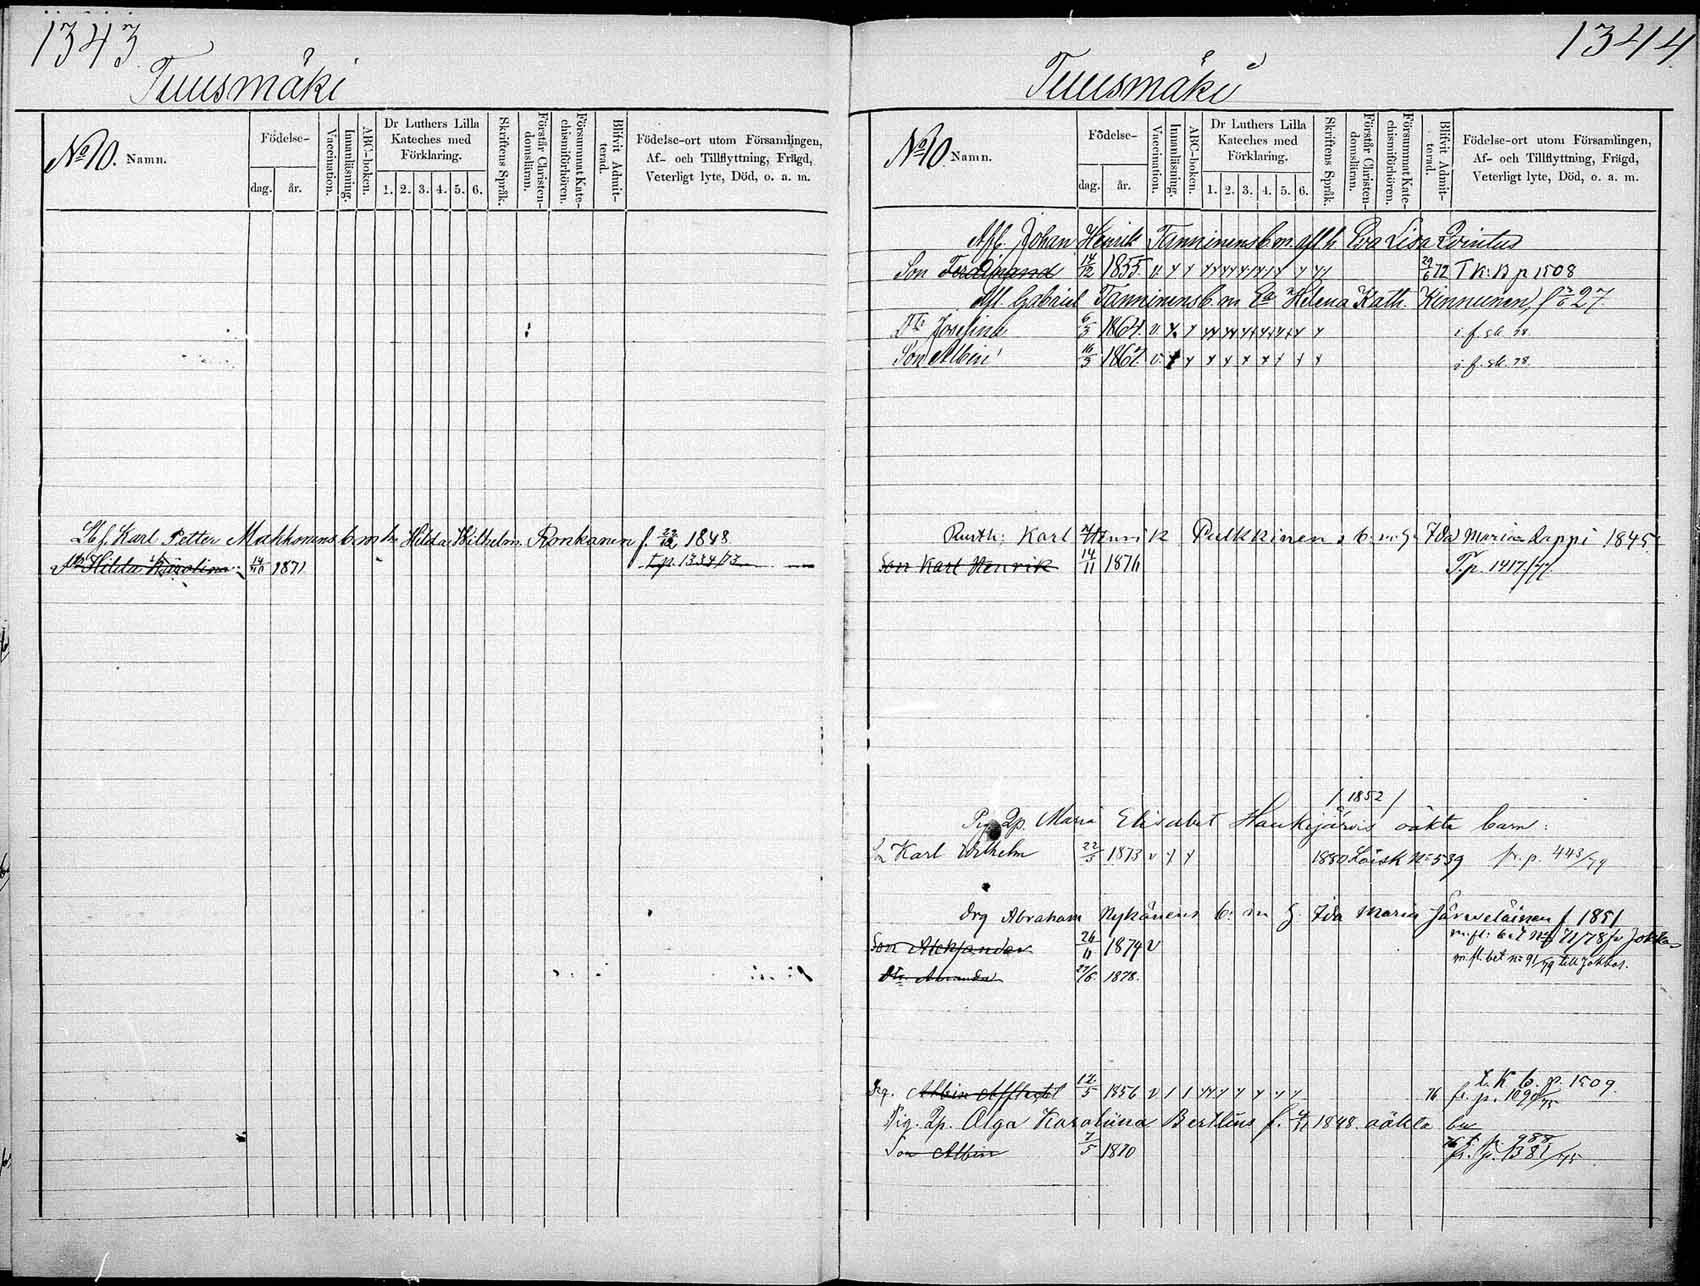 1343
Tuusmäki
No 10. Namn.
Födelse-
dag. år.
Vaccination.
Innanläsning.
ABC-boken.
Dr Luthers Lilla Kateches med Förklaring.
1. 2. 3. 4. 5. 6.
Skriftens Språk.
Förstår Christen-domsläran.
Försummat Kate-chismiförhören.
Blifvit Admit-terad.
Födelse-ort utom Församlingen,
Af- och Tillflyttning, Frägd,
Veterligt lyte, Död, o. a. m.
Karl Petter Makkonens b. m. h. Hilda Wilhelm. Ronkanen f. 1848
Hilda Karolina 1871 t. p. 1334/73
1344
Tuusmäki
No 10 Namn.
Födelse-
dag. år.
Vaccination.
Innanläsning.
ABC-boken.
Dr Luthers Lilla Kateches med Förklaring.
1. 2. 3. 4. 5. 6.
Skriftens Språk.
Förstår Christen-domsläran.
Försummat Kate-chismiförhören.
Blifvit Admit-terad.
Födelse-ort utom Församlingen,
Af- och Tillflyttning, Frägd,
Veterligt lyte, Död, o. a. m.
Afl. Johan Henrik Tanninens b. m. afl. h. Eva Lisa Qvintus
Son Ferdinand 14/12 1855 v 29/6 72 T K: B p 1508
Afl. Gabriel Tanninens b. m. Ea Helena Kath. Kinnunen, 27
Dtr Josefina 6/5 1864 v
Son Albin 16/5 1867 v
Karl Henrik Pulkkinen s b. m. h. Ida Maria Lappi 1845
Son Karl Henrik 14/11 1876 T. p. 1417/77
/ 1852 /
Pig. Qp. Maria Elisabet Haukijärvis oäkta barn:
Karl Wilhelm 22/5 1873 v 1880 Läsk No 539 fr. p. 443/79
Drg Abraham Nykänens b. m. h. Ida Maria Järveläinen f. 1851
Son Aleksander 26/11 1874 v 71/78 fr Jokkas
Dtr Amanda 27/6 1878. m. fl. bet. No 91/79 till Jokkas.
t. K. b. p. 1509.
Drg. Albin 12/5 1856 v 76 fr. p. 1090/75
Pig. Qp. Olga Karoliina Bertlins f. 1848 oäkta bn
t. p. 988
Son Albin 7/5 1870 fr. p. 1381/75